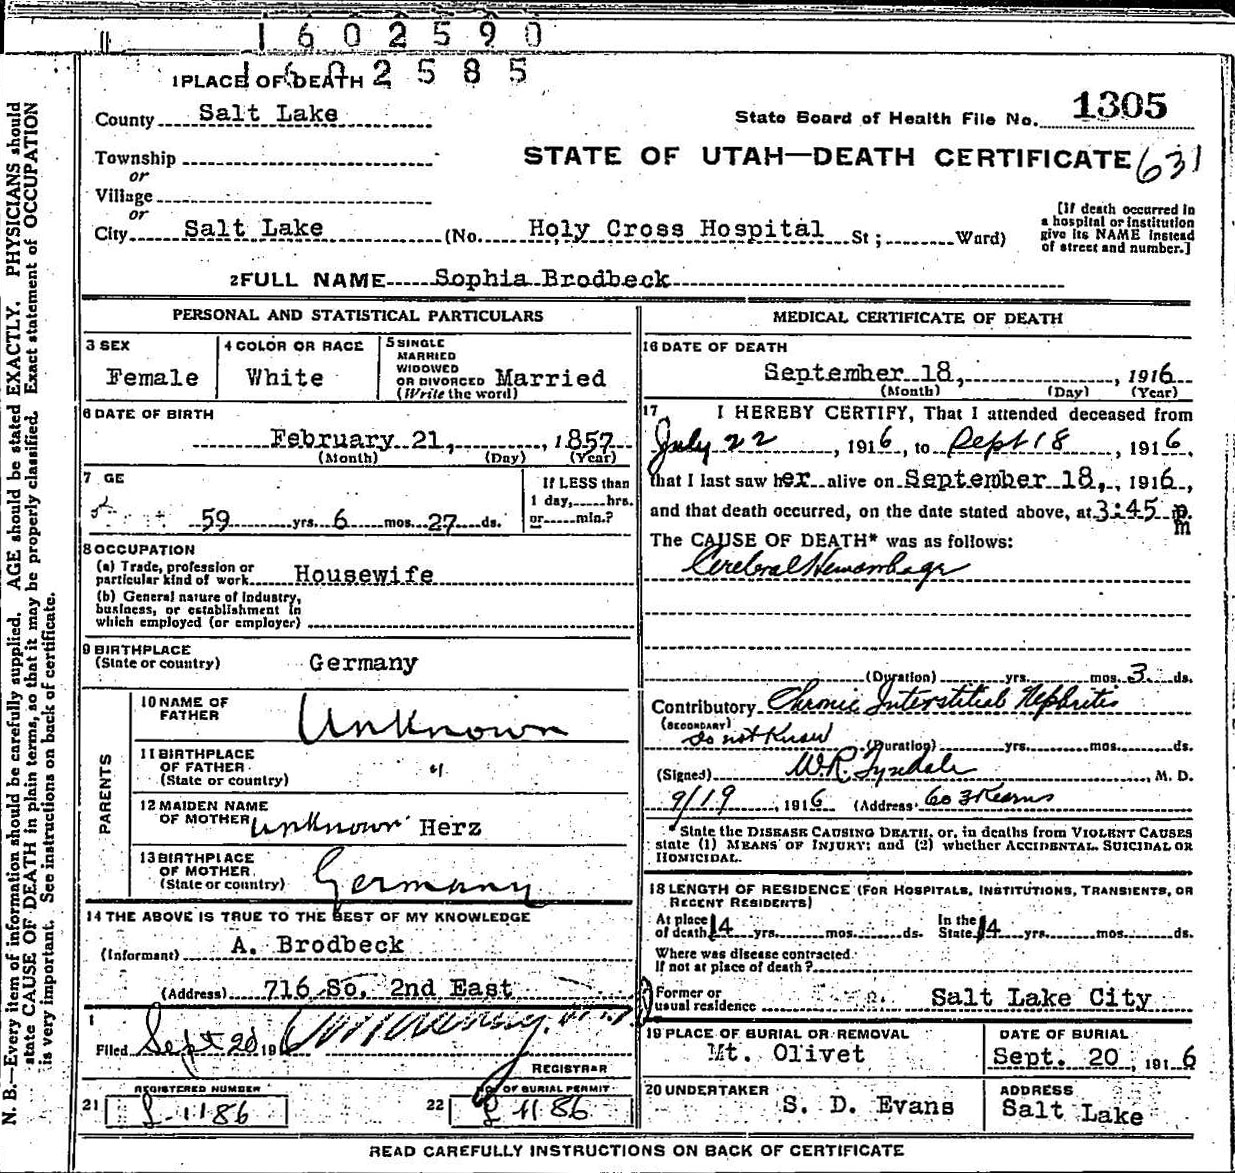 1602590
1602585
1 PLACE OF DEATH
County Salt Lake
State Board of Health File No. 1305
Township
or
Village
or
STATE OF UTAH—DEATH CERTIFICATE 631
City Salt Lake (No. Holy Cross Hospital St; Ward)
[If death occurred in
a hospital or institution
give its NAME instead
of street and number.]
2 FULL NAME Sophia Brodbeck
PERSONAL AND STATISTICAL PARTICULARS
3 SEX
Female
4 COLOR OR RACE
White
5 SINGLE
MARRIED
WIDOWED
OR DIVORCED Married
(Write the word)
6 DATE OF BIRTH
February 21, 1857
(Month) (Day) (Year)
7 GE
59 yrs. 6 mos. 27 ds.
If LESS than
1 day, hrs.
or min.?
8 OCCUPATION
(a) Trade, profession or
particular kind of work Housewife
(b) General nature of Industry,
business, or establishment in
which employed (or employer)
9 BIRTHPLACE
(State or country) Germany
PARENTS
10 NAME OF
FATHER Unknown
11 BIRTHPLACE
OF FATHER "
(State or country)
12 MAIDEN NAME
OF MOTHER unknown Herz
13 BIRTHPLACE
OF MOTHER
(State or country) Germany
14 THE ABOVE IS TRUE TO THE BEST OF MY KNOWLEDGE
(Informant) A. Brodbeck
(Address) 716 So. 2nd East
Filed Sept 20 1916
REGISTRAR
REGISTERED NUMBER
21 1186
NO. OF BURIAL PERMIT
22 1186
MEDICAL CERTIFICATE OF DEATH
16 DATE OF DEATH
September 18, , 1916
(Month) (Day) (Year)
17 I HEREBY CERTIFY, That I attended deceased from
July 22 , 1916, to Sept 18 , 1916,
that I last saw her alive on September 18, , 1916,
and that death occurred, on the date stated above, at 3:45 p.
m
The CAUSE OF DEATH* was as follows:
Cerebral Hemorrhage
(Duration) yrs. mos. 3 ds.
Contributory Chronic Interstitial Nephritis
(SECONDARY)
do not Know (Duration) yrs. mos. ds.
(Signed) W.R. Tyndale , M. D.
9/19 , 1916 (Address) 603 Kearns
* State the DISEASE CAUSING DEATH, or, in deaths from VIOLENT CAUSES
state (1) MEANS OF INJURY; and (2) whether ACCIDENTAL, SUICIDAL OR
HOMICIDAL.
18 LENGTH OF RESIDENCE (FOR HOSPITALS, INSTITUTIONS, TRANSIENTS, OR
RECENT RESIDENTS)
At place
of death 14 yrs. mos. ds.
In the
State 14 yrs. mos. ds.
Where was disease contracted
If not at place of death?
Former or
usual residence Salt Lake City
19 PLACE OF BURIAL OR REMOVAL
Mt. Olivet
DATE OF BURIAL
Sept. 20, 1916
20 UNDERTAKER
S. D. Evans
ADDRESS
Salt Lake
READ CAREFULLY INSTRUCTIONS ON BACK OF CERTIFICATE
N. B.—Every item of information should be carefully supplied. AGE should be stated EXACTLY. PHYSICIANS should
state CAUSE OF DEATH in plain terms, so that it may be properly classified. Exact statement of OCCUPATION
is very important. See instructions on back of certificate.